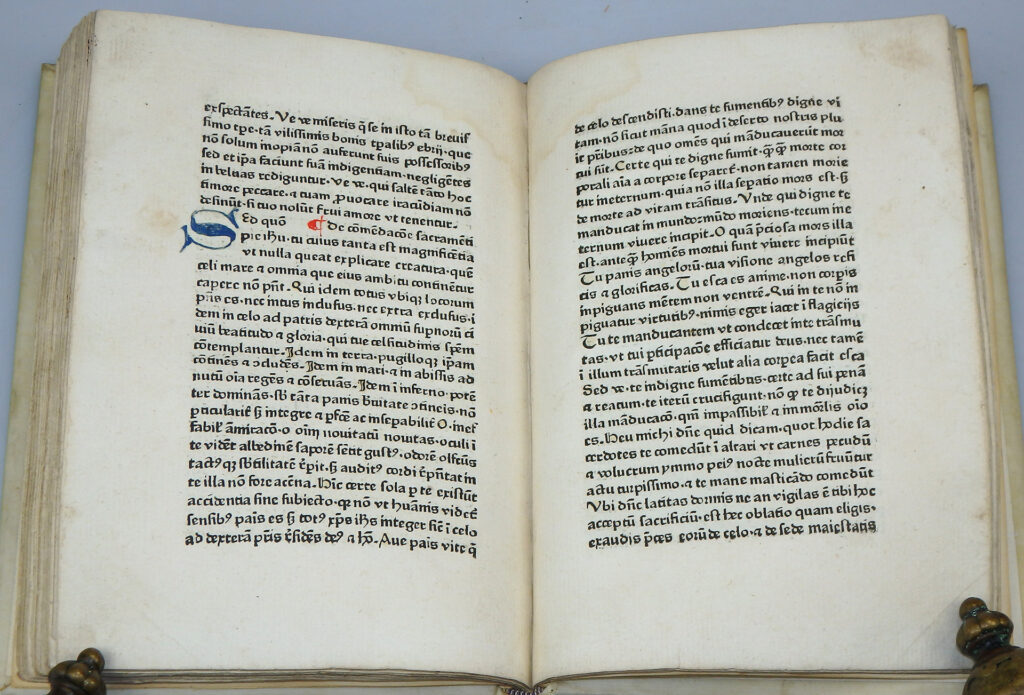 exspectātes. Ve ve miseris q̄ se in isto tā brevis
simo tpe. tā vilissimis bonis tp̄alibꝰ ebrij. que
nō solum inopiā nō auferunt suis possessoribꝰ
sed et ip̄a faciunt suā indigentiam. negligētes
in beluas rediguntur. Ve ve. qui saltē tāto hoc
timore peccare. ⁊ tuam ꝓuocare iracūdiam nō
desinūt. si tuo nolūt frui amore vt tenentur.
SEd quō ¶ De cōmēdacōe sacramēti
pie ihū. tu cuius tanta est magnificētia
vt nulla queat explicare creatura. quē
celi mare ⁊ omnia que eius ambitu continētur
capere nō pn̄t. Qui idem totus vbiqꝫ locorum
p̄ns es. nec intus inclusus. nec extra exclusus. i
dem in celo ad patris dexterā ommū suꝑnorū ci
uiū beatitudo ⁊ gloria. qui tue celsitudinis spēm
cōtemplantur. Idem in terra. pugilloqꝫ ip̄am
cōtinēs ⁊ ↄcludēs. Idem in mari. ⁊ in abissis ad
nutū oīa regēs ⁊ cōseruās. Idem ī inferno. potē
ter dominās. sb̄ tāta panis buitate ↄtineis. nō
ꝑticulariṫ sꝫ integre ⁊ ꝑfcē ac insepabiliṫ O. inef
fabil' am̄iracō. o oīm nouitatū nouitas. oculi ī
te vidēt albedinē saporē sētit gustꝰ. odorē olfctūs
tactꝰ qꝫ sb̄tilitatē ēpit. sꝫ auditꝰ cordi ēpn̄tat in
te illa nō fore acēna. Hīc certe sola ꝑ te existūt
accidentia sine subiecto. ꝙ nō vt hūanis vidēt̄
sensibꝰ pais es sꝫ totꝰ xp̄s ih̄s integer siē ī celo
ad dexterā pr̄is r̄sidēs deꝰ ⁊ hō. Aue pais vite q̄
de celo descendisti. dans te sumentibꝰ digne vi
tam. nō sicut māna quod ī deserto nostris plu
it pr̄ibus: de quo om̄es qui māducauerūt mor
tui sūt. Certe qui te digne sumit. ꝙꝙ morte cor
porali aīa a corpore separet̄. non tamen morie
tur ineternum. quia nō illa sepatio mors est. sꝫ
de morte ad vitam trāsitus. Vnde qui digne te
manducat in mundo: mūdo moriens. tecum ine
ternum viuere incipit. O quā p̄ciosa mors illa
est. anteꝙ hom̄nes mortui sunt viuere incipiūt
Tu panis angelorū. tua visione angelos refi
cis ⁊ glorificas. Tu esca es anime. non corꝑis
inpiguans mētem non ventrē. Qui in te nō in
piguatur virtutibꝰ. nimis eger iacet ī flagicijs
Tu te manducantem vt condecet in te trāsmu
tas. vt tui ꝑticipacōe efficiatur deus. nec tamē
ī illum trāsmutaris velut alia corꝑea facit esca
Sed ve. te indigne sumētibus. certe ad sui penā
⁊ reatum. te iterū crucifigunt. nō ꝙ te dijudicꝫ
illa māducacō. qm̄ impassibil' ⁊ immōrlis oīo
es. Heu michi dn̄e quid dicam. quot hodie sa
cerdotes te comedūt ī altari vt carnes pecudū
⁊ volucrum ymmo peiꝰ nocte mulierū fruūtur
actu turpissimo. ⁊ te mane masticādo comedūt
Vbi dn̄e latitas dormis ne an vigilas ē tibi hoc
acceptū sacrificiū. est hec oblatio quam eligis.
exaudis p̄ces eorū de celo. ⁊ de sede maiestatis